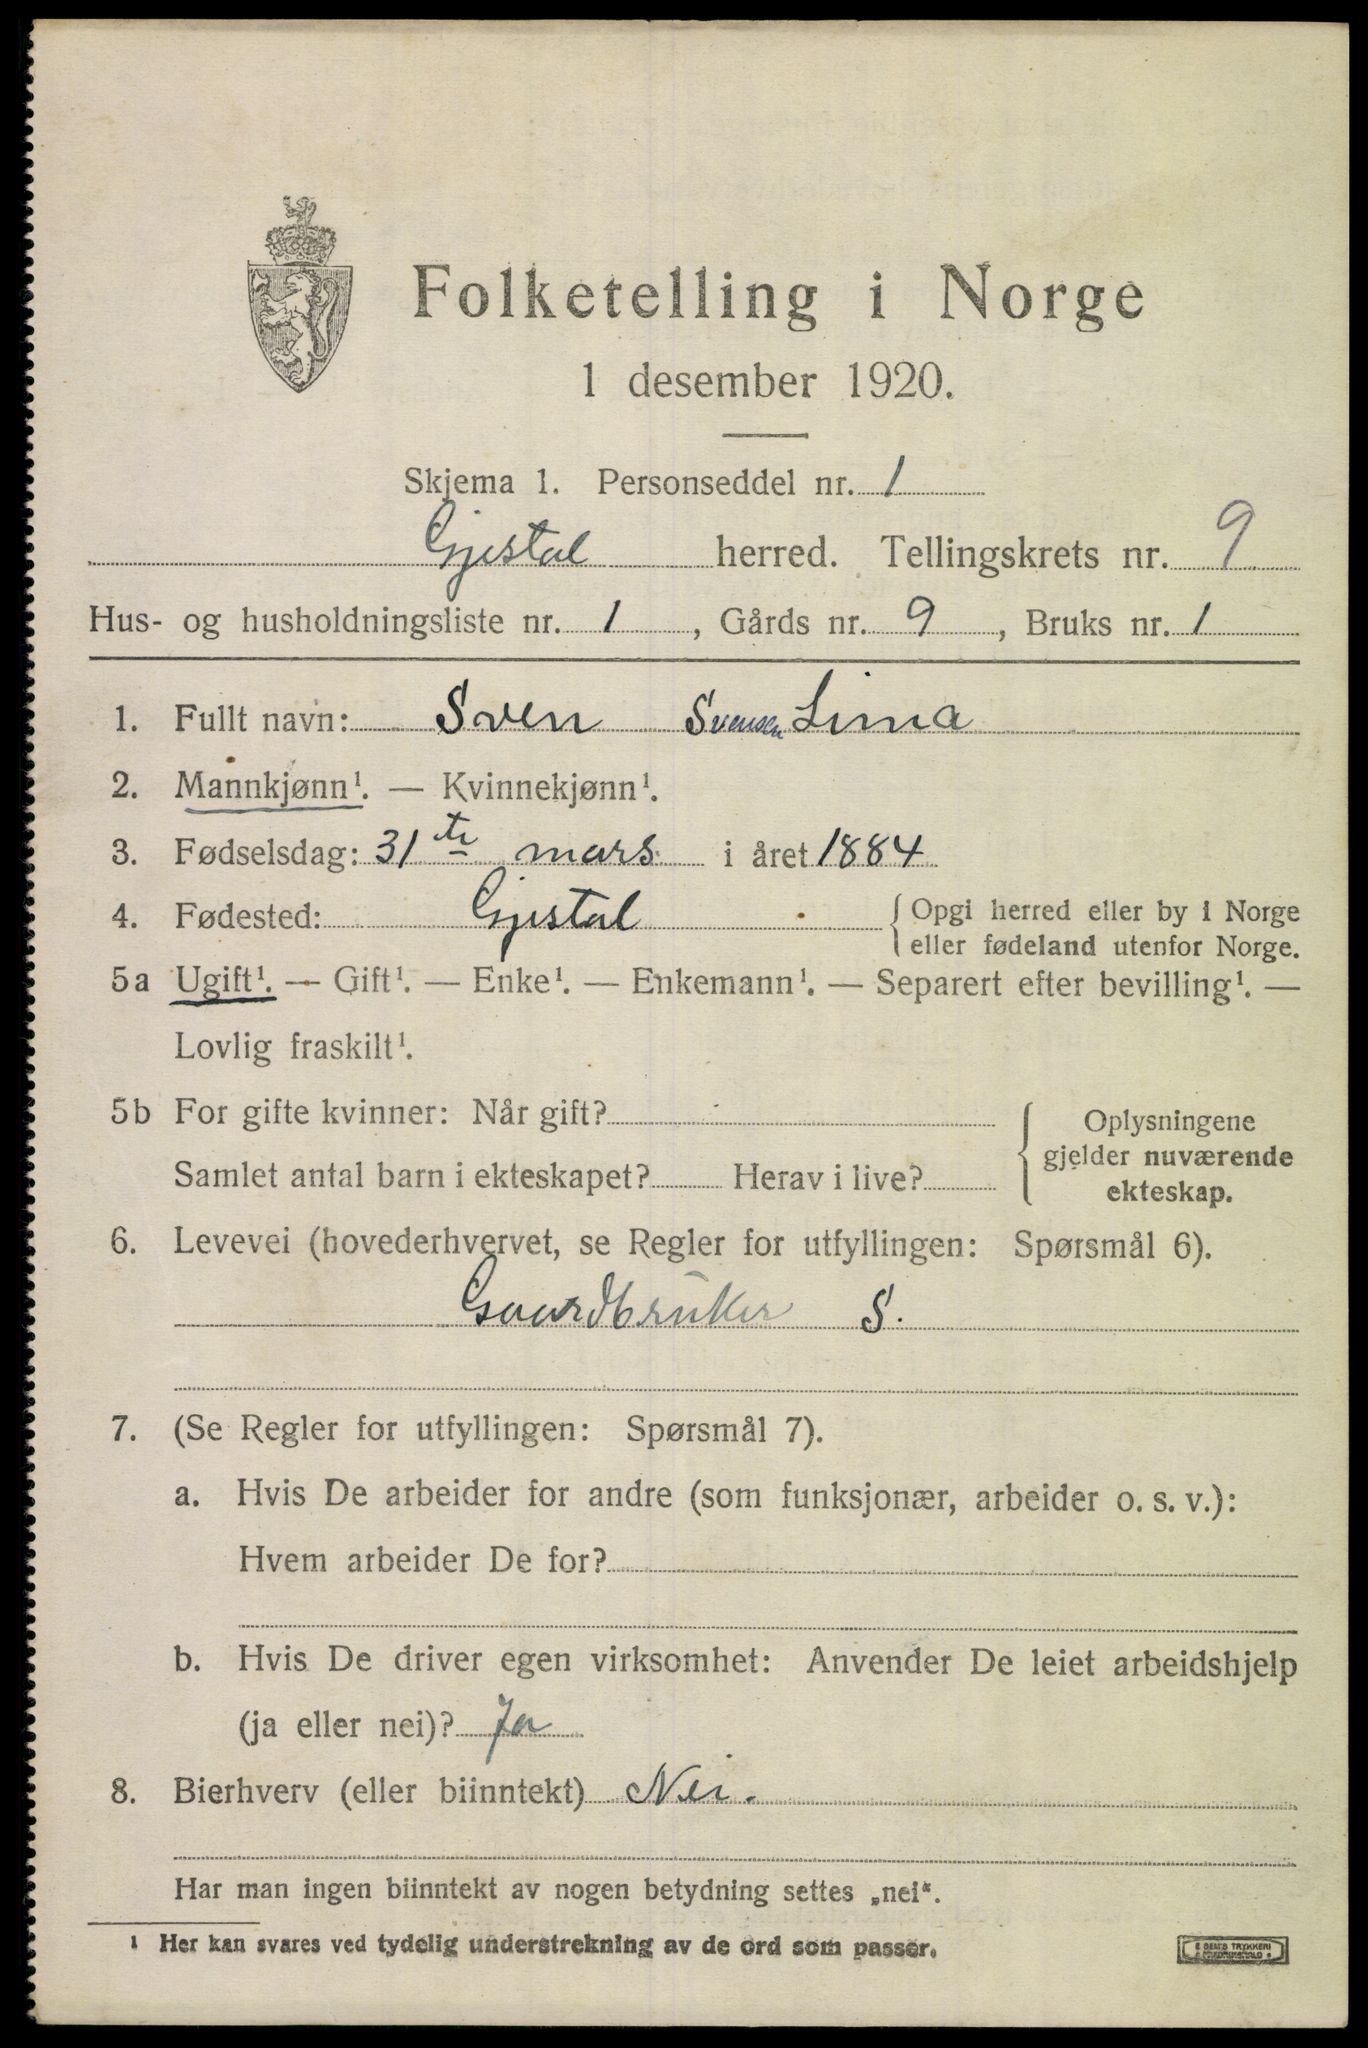 Folketelling i Norge
1 desember 1920.
Skjema 1. Personseddel nr. 1
Gjestal herred. Tellingskrets nr. 9
Hus- og husholdningsliste nr. 1, Gårds nr. 9, Bruks nr. 1
1. Fullt navn: Sven Svensen Lima
2. Mannkjønn¹. — Kvinnekjønn¹.
3. Fødselsdag: 31te mars i året 1884
4. Fødested: Gjestal { Opgi herred eller by i Norge
eller fødeland utenfor Norge.
5a Ugift¹. — Gift¹. — Enke¹. — Enkemann¹. — Separert efter bevilling¹. —
Lovlig fraskilt¹.
5b For gifte kvinner: Når gift?
Samlet antal barn i ekteskapet? Herav i live?
{ Oplysningene
gjelder nuværende
ekteskap.
6. Levevei (hovederhvervet, se Regler for utfyllingen: Spørsmål 6).
Gaardbrüker S.
7. (Se Regler for utfyllingen: Spørsmål 7).
a. Hvis De arbeider for andre (som funksjonær, arbeider o. s. v.):
Hvem arbeider De for?
b. Hvis De driver egen virksomhet: Anvender De leiet arbeidshjelp
(ja eller nei)? Ja
8. Bierhverv (eller biinntekt) Nei.
Har man ingen biinntekt av nogen betydning settes „nei“.
¹ Her kan svares ved tydelig understrekning av de ord som passer.